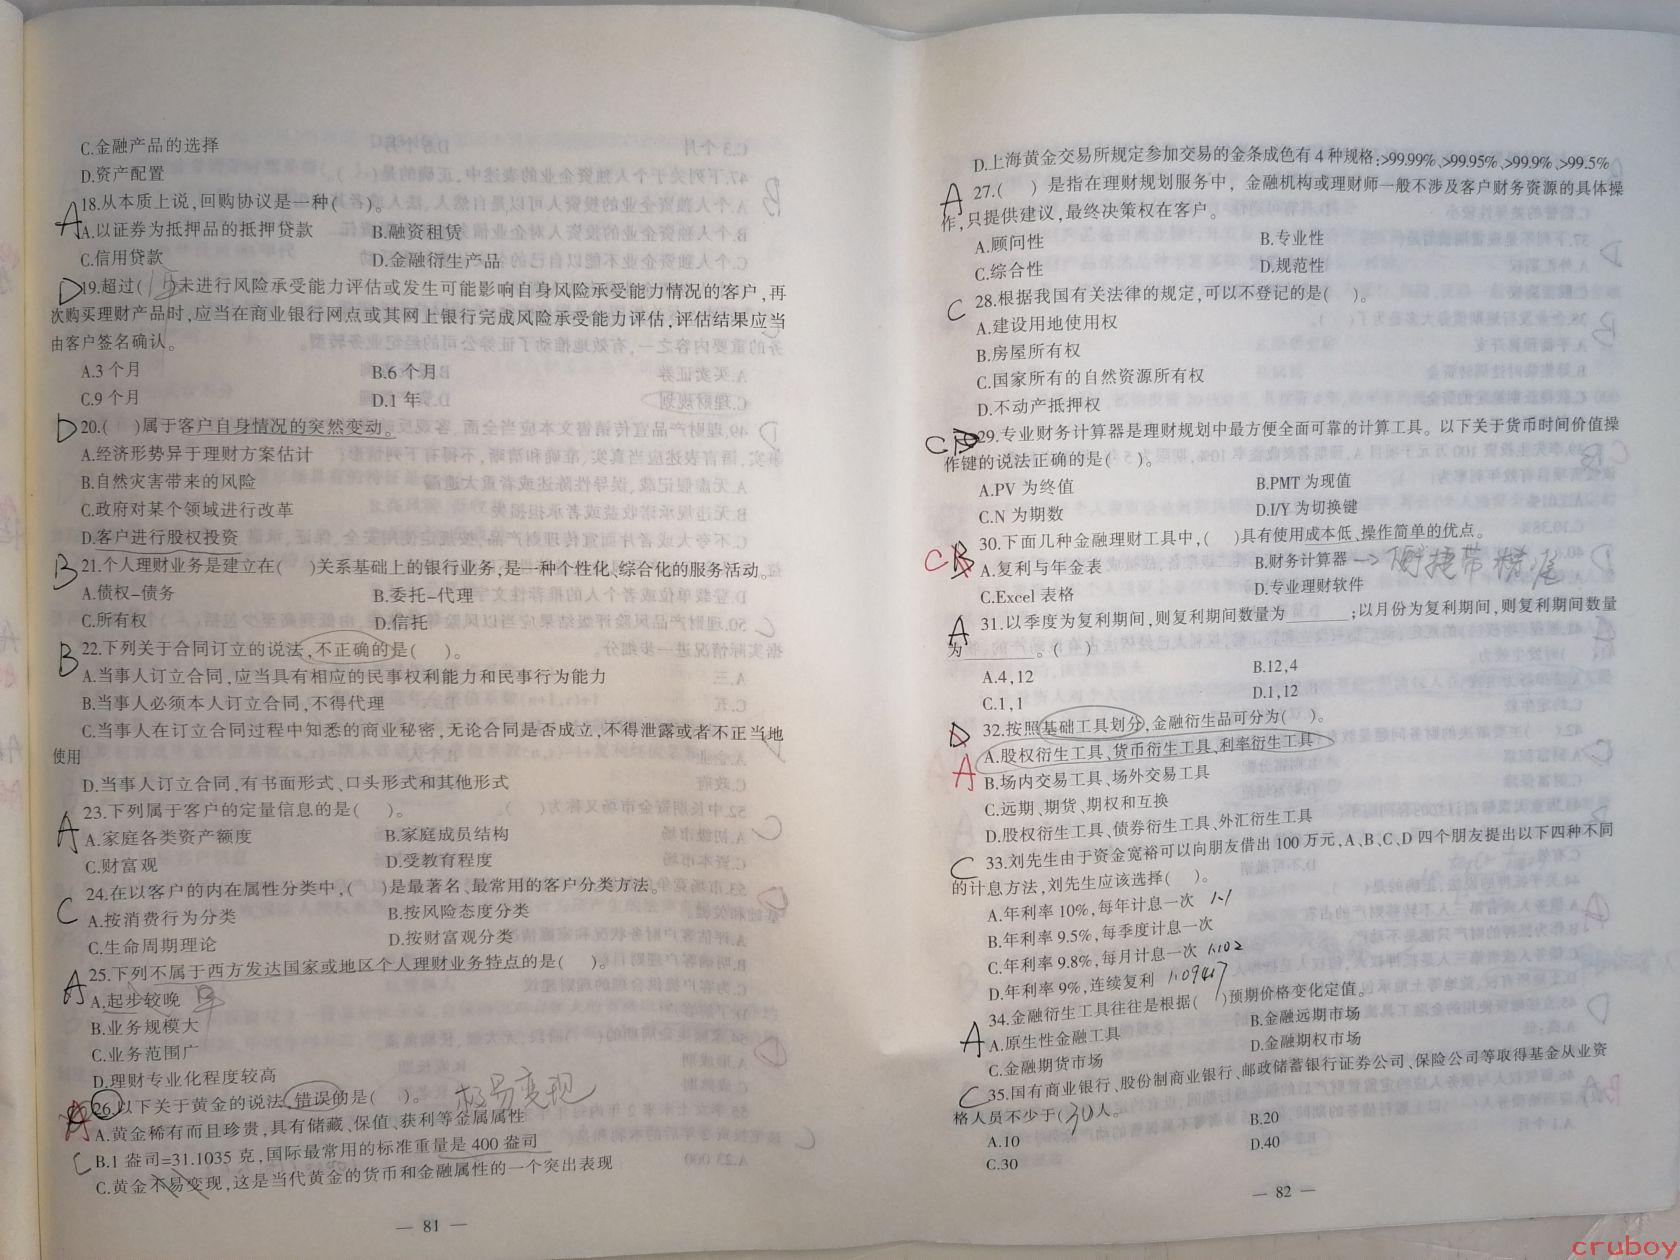 C.金融产品的选择
D.资产配置
A 18.从本质上说,回购协议是一种(　　)。
A.以证券为抵押品的抵押贷款　　B.融资租赁
C.信用贷款　　D.金融衍生产品
D 19.超过( 1年 )未进行风险承受能力评估或发生可能影响自身风险承受能力情况的客户,再
次购买理财产品时,应当在商业银行网点或其网上银行完成风险承受能力评估,评估结果应当
由客户签名确认。
A.3 个月　　B.6 个月
C.9 个月　　D.1 年
D 20.(　　)属于客户自身情况的突然变动。
A.经济形势异于理财方案估计
B.自然灾害带来的风险
C.政府对某个领域进行改革
D.客户进行股权投资
B 21.个人理财业务是建立在(　　)关系基础上的银行业务,是一种个性化、综合化的服务活动。
A.债权–债务　　B.委托–代理
C.所有权　　D.信托
B 22.下列关于合同订立的说法,不正确的是(　　)。
A.当事人订立合同,应当具有相应的民事权利能力和民事行为能力
B.当事人必须本人订立合同,不得代理
C.当事人在订立合同过程中知悉的商业秘密,无论合同是否成立,不得泄露或者不正当地
使用
D.当事人订立合同,有书面形式、口头形式和其他形式
A 23.下列属于客户的定量信息的是(　　)。
A.家庭各类资产额度　　B.家庭成员结构
C.财富观　　D.受教育程度
C 24.在以客户的内在属性分类中,(　　)是最著名、最常用的客户分类方法。
A.按消费行为分类　　B.按风险态度分类
C.生命周期理论　　D.按财富观分类
A 25.下列不属于西方发达国家或地区个人理财业务特点的是(　　)。
A.起步较晚 早
B.业务规模大
C.业务范围广
D.理财专业化程度较高
A 26.以下关于黄金的说法,错误的是(　　)。 极易变现
A.黄金稀有而且珍贵,具有储藏、保值、获利等金属属性
C B.1 盎司=31.1035 克,国际最常用的标准重量是 400 盎司
C.黄金不易变现,这是当代黄金的货币和金融属性的一个突出表现
— 81 —
D.上海黄金交易所规定参加交易的金条成色有 4 种规格:>99.99%、>99.95%、>99.9%、>99.5%
A 27.(　　)是指在理财规划服务中, 金融机构或理财师一般不涉及客户财务资源的具体操
作,只提供建议,最终决策权在客户。
A.顾问性　　B.专业性
C.综合性　　D.规范性
C 28.根据我国有关法律的规定,可以不登记的是(　　)。
A.建设用地使用权
B.房屋所有权
C.国家所有的自然资源所有权
D.不动产抵押权
C 29.专业财务计算器是理财规划中最方便全面可靠的计算工具。以下关于货币时间价值操
作键的说法正确的是(　　)。
A.PV 为终值　　B.PMT 为现值
C.N 为期数　　D.I/Y 为切换键
C 30.下面几种金融理财工具中,(　　)具有使用成本低、操作简单的优点。
A.复利与年金表　　B.财务计算器
C.Excel 表格　　D.专业理财软件
A 31.以季度为复利期间,则复利期间数量为________;以月份为复利期间,则复利期间数量
为________。(　　)
A.4,12　　B.12,4
C.1,1　　D.1,12
32.按照基础工具划分,金融衍生品可分为(　　)。
A.股权衍生工具、货币衍生工具、利率衍生工具
A B.场内交易工具、场外交易工具
C.远期、期货、期权和互换
D.股权衍生工具、债券衍生工具、外汇衍生工具
C 33.刘先生由于资金宽裕可以向朋友借出 100 万元,A、B、C、D 四个朋友提出以下四种不同
的计息方法,刘先生应该选择(　　)。
A.年利率 10%,每年计息一次 1.1
B.年利率 9.5%,每季度计息一次
C.年利率 9.8%,每月计息一次 1.102
D.年利率 9%,连续复利 1.09417
A 34.金融衍生工具往往是根据(　　)预期价格变化定值。
A.原生性金融工具　　B.金融远期市场
C.金融期货市场　　D.金融期权市场
C 35.国有商业银行、股份制商业银行、邮政储蓄银行证券公司、保险公司等取得基金从业资
格人员不少于( 30 )人。
A.10　　B.20
C.30　　D.40
— 82 —
cruboy